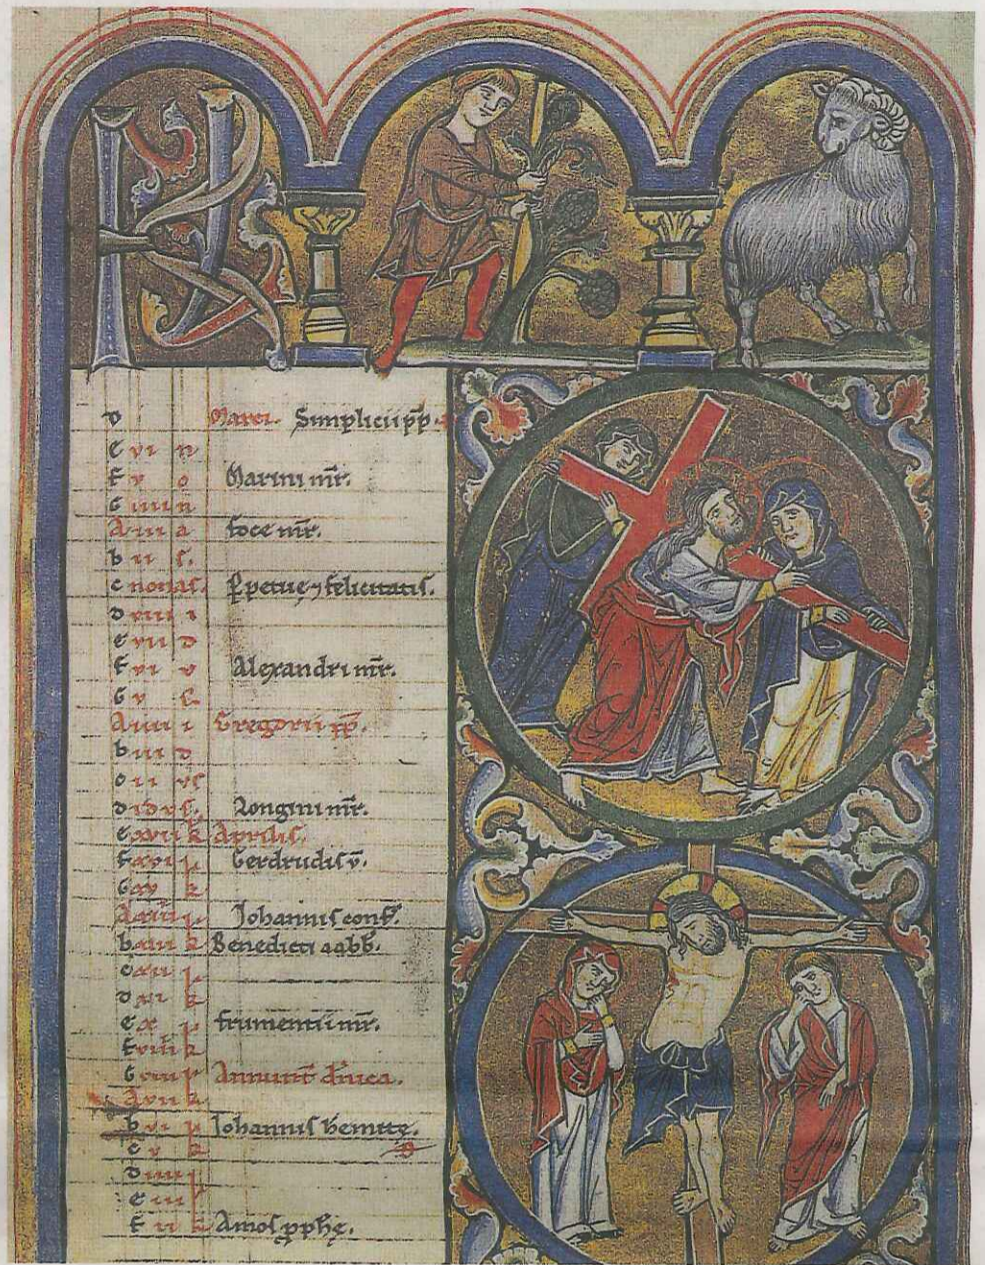 KL
D Marci. Simplicii pp.
E vi n
F v o Marini mr.
G iiii n
A iii a foce mr.
b ii s.
c nonas. Ppetue ⁊ felicitatis.
D viii i
E vii d
F vi v Alexandri mr.
G v s
A iiii i Gregorii pp.
b iii d
c ii vs
D idvs. Longini mr.
E xvii k Aprilis.
F xvi k Gerdrudis v.
G xv k
A xiiii k Johannis conf.
b xiii k Benedicti abb.
c xii k
D xi k
E x k frumentii mr.
F viiii k
G viii k Annunt dnica.
A vii k
b vi k Johannis hemite.
c v k
D iiii k
E iii k
F ii k Amos pphe.